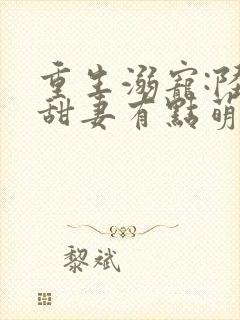 重生溺寵:隆
甜妻有點萌
黎斌